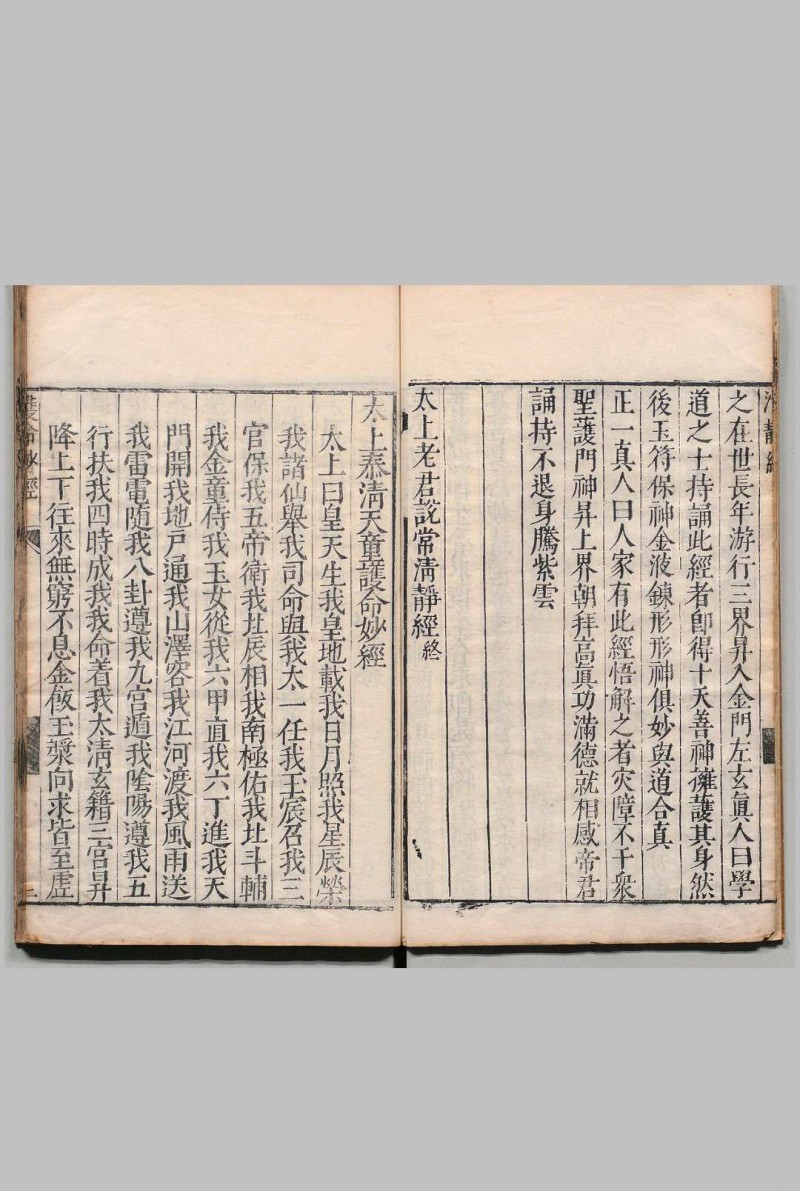 清靜經
之在世長年游行三界昇入金門左玄眞人曰學
道之士持誦此經者卽得十天善神擁護其身然
後玉符保神金液鍊形形神俱妙與道合真
正一真人曰人家有此經悟解之者灾障不干衆
聖護門神昇上界朝拜高眞功滿德就相感帝君
誦持不退身騰紫雲
太上老君說常淸靜經終
太上泰淸天童護命妙經
太上曰皇天生我皇地載我日月照我星辰榮
我諸仙舉我司命與我太一任我玉宸召我三
官保我五帝衛我北辰相我南極佑我北斗輔
我金童侍我玉女從我六甲直我六丁進我天
門開我地戶通我山澤容我江河渡我風雨送
我雷電隨我八卦遵我九宮遁我陰陽遵我五
行扶我四時成我我命着我太淸玄籍三宮昇
降上下往來無窮不息金飯玉漿向求皆至虛
護命妙經
二